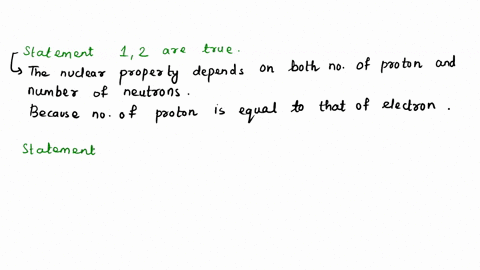 Statement 1,2 are true.
The nuclear property depends on both no. of proton and
number of neutrons.
Because no. of proton is equal to that of electron.
Statement